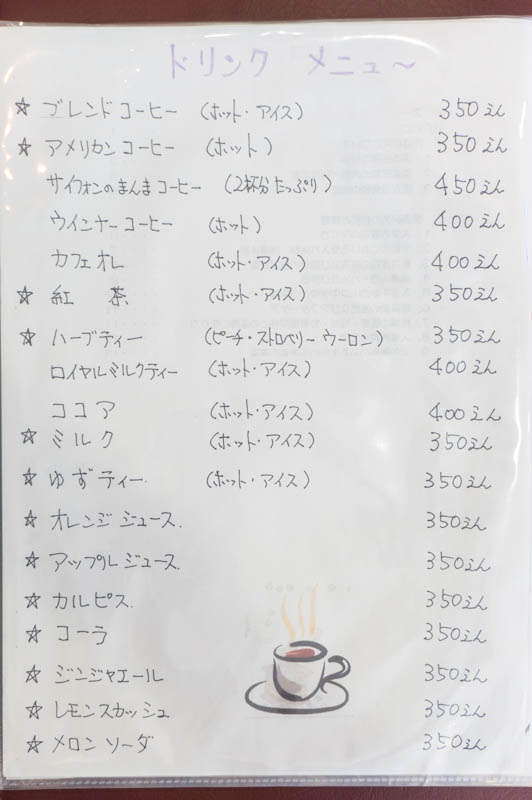 ドリンク メニュー
☆ ブレンドコーヒー (ホット・アイス) 350えん
☆ アメリカンコーヒー (ホット) 350えん
サイフォンのまんまコーヒー (2杯分たっぷり) 450えん
ウインナーコーヒー (ホット) 400えん
カフェオレ (ホット・アイス) 400えん
☆ 紅 茶 (ホット・アイス) 350えん
☆ ハーブティー (ピーチ・ストロベリー ウーロン) 350えん
ロイヤルミルクティー (ホット・アイス) 400えん
ココア (ホット・アイス) 400えん
☆ ミルク (ホット・アイス) 350えん
☆ ゆずティー (ホット・アイス) 350えん
☆ オレンジジュース. 350えん
☆ アップルジュース. 350えん
☆ カルピス. 350えん
☆ コーラ 350えん
☆ ジンジャエール 350えん
☆ レモンスカッシュ 350えん
☆ メロンソーダ 350えん